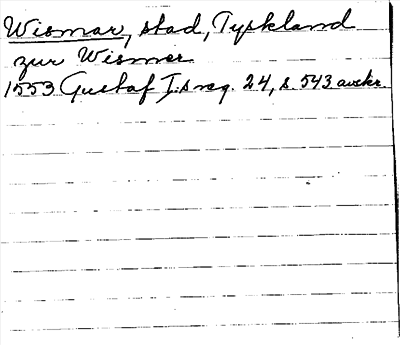 Wismar, stad, Tyskland
zur Wismer
1553 Gustaf I:s reg. 24, s. 543 avskr.